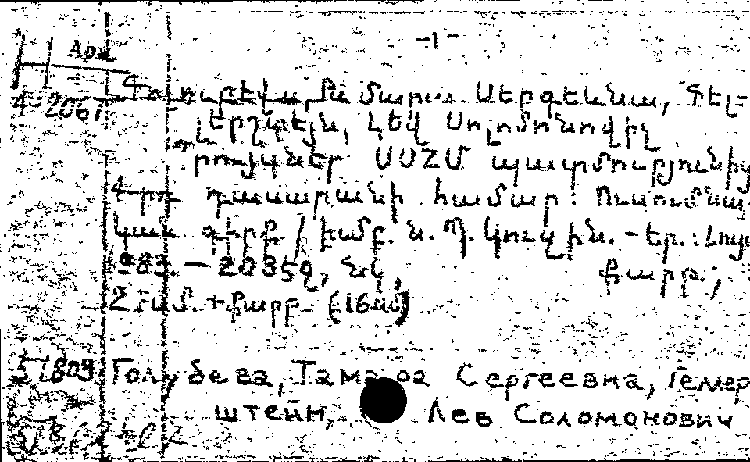 - 1 -
Арм
Գոլուբևա, Թամարա Սերգեևնա, Գել-
4-2067
լերշտեյն, Լև Սոլոմոնովիչ
րույցներ ՍՍՀՄ պատմությունից
4-րդ դասարանի համար: Ուսումնա-
կան գիրք / խմբ. Ն. Պ. Կուզին. - Եր.: Լույս
983. - 203 էջ, նկ,
քարտ.;
2 + քարտ. (16
51809 Голубева, Тамара Сергеевна, Геллер
штейн, Лев Соломонович